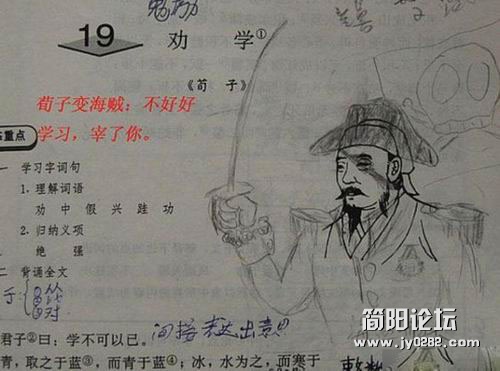 19 劝 学①
《荀 子》
荀子变海贼：不好好
学习，宰了你。
重点
一 学习字词句
1. 理解词语
劝 中 假 兴 跬 功
2. 归纳义项
绝 强
二 背诵全文
君子②曰：学不可以已。间接表达出意
青，取之于蓝③，而青于蓝④；冰，水为之，而寒于
简阳论坛
www.jy0282.com